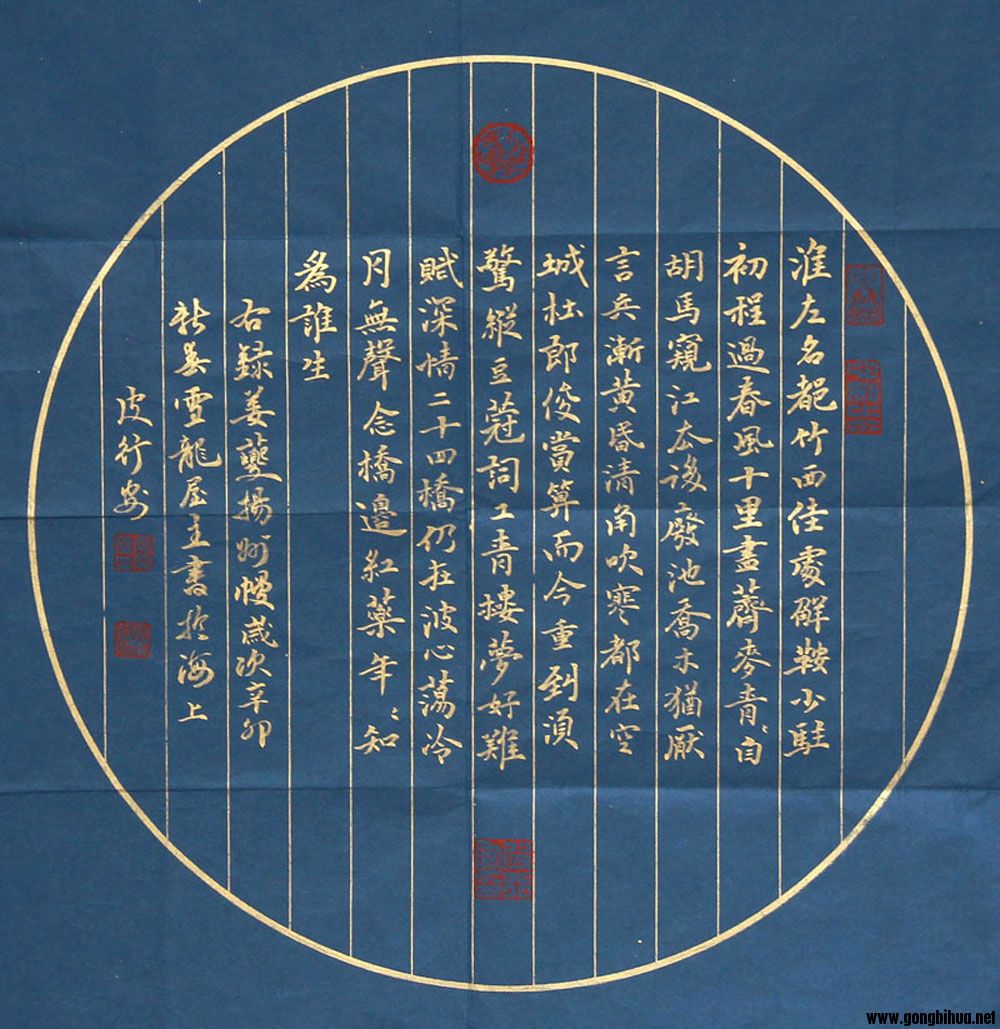 淮左名都竹西佳處解鞍少駐
初程過春風十里盡薺麥青〻自
胡馬窺江去後廢池喬木猶厭
言兵漸黃昏清角吹寒都在空
城杜郎俊賞算而今重到須
驚縱豆蔻詞工青樓夢好難
賦深情二十四橋仍在波心蕩冷
月無聲念橋邊紅藥年〻知
為誰生
右錄姜夔揚州慢歲次辛卯
雪龍屋主書於海上
皮行
www.gongbihua.net